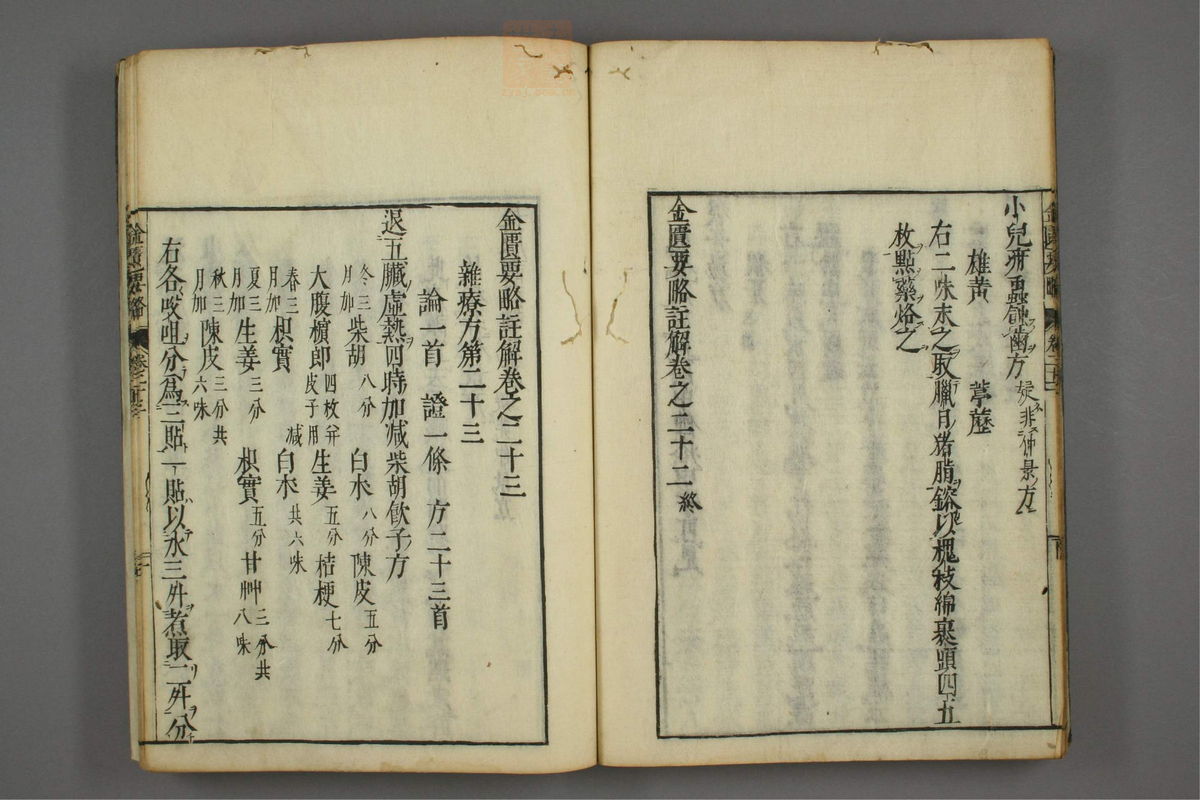 小兒疳蟲蝕齒方 疑非仲景方
雄黃 葶藶
右二味末之取臘日猪脂鎔以槐枝綿裹頭四五
枚點藥烙之
金匱要略註解卷之二十二終
金匱要略註解卷之二十三
雜療方第二十三
論一首 證一條 方二十三首
退五臟虛熱四時加减柴胡飮子方
冬三月加柴胡八分 白朮八分 陳皮五分
大腹檳郎四枚并皮子用 生姜五分 桔梗七分
春三月加枳實 减白朮共六味
夏三月加生姜三分 枳實五分 甘艸三分共八味
秋三月加陳皮三分共六味
右各㕮咀分爲三貼一貼以水三升煮取二升分
金匱要略